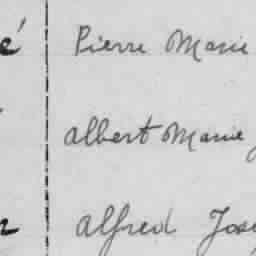 é Pierre Marie
Albert Marie
Alfred Jose